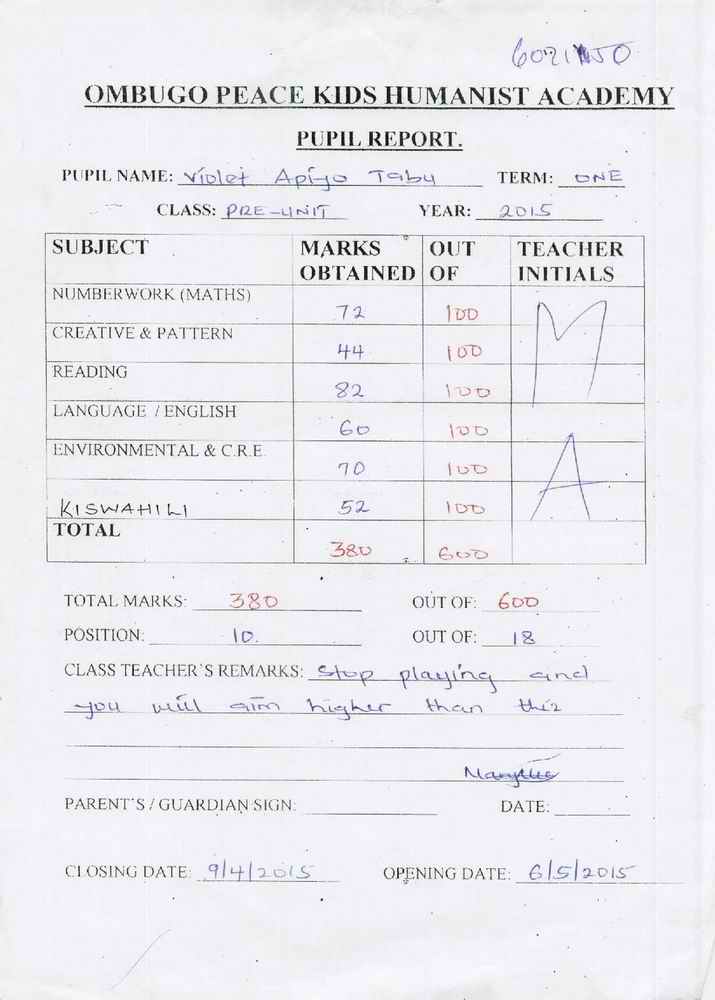 OMBUGO PEACE KIDS HUMANIST ACADEMY
PUPIL REPORT.
PUPIL NAME: Violet Apiyo Tabu TERM: ONE
CLASS: PRE-UNIT YEAR: 2015
SUBJECT MARKS OBTAINED OUT OF TEACHER INITIALS
NUMBERWORK (MATHS) 72 100 M
CREATIVE & PATTERN 44 100
READING 82 100
LANGUAGE / ENGLISH 60 100
ENVIRONMENTAL & C.R.E. 70 100 A
KISWAHILI 52 100
TOTAL 380 600
TOTAL MARKS: 380 OUT OF: 600
POSITION: 10. OUT OF: 18
CLASS TEACHER'S REMARKS: Stop playing and
you will aim higher than this
PARENT'S / GUARDIAN SIGN: DATE:
CLOSING DATE: 9/4/2015 OPENING DATE: 6/5/2015